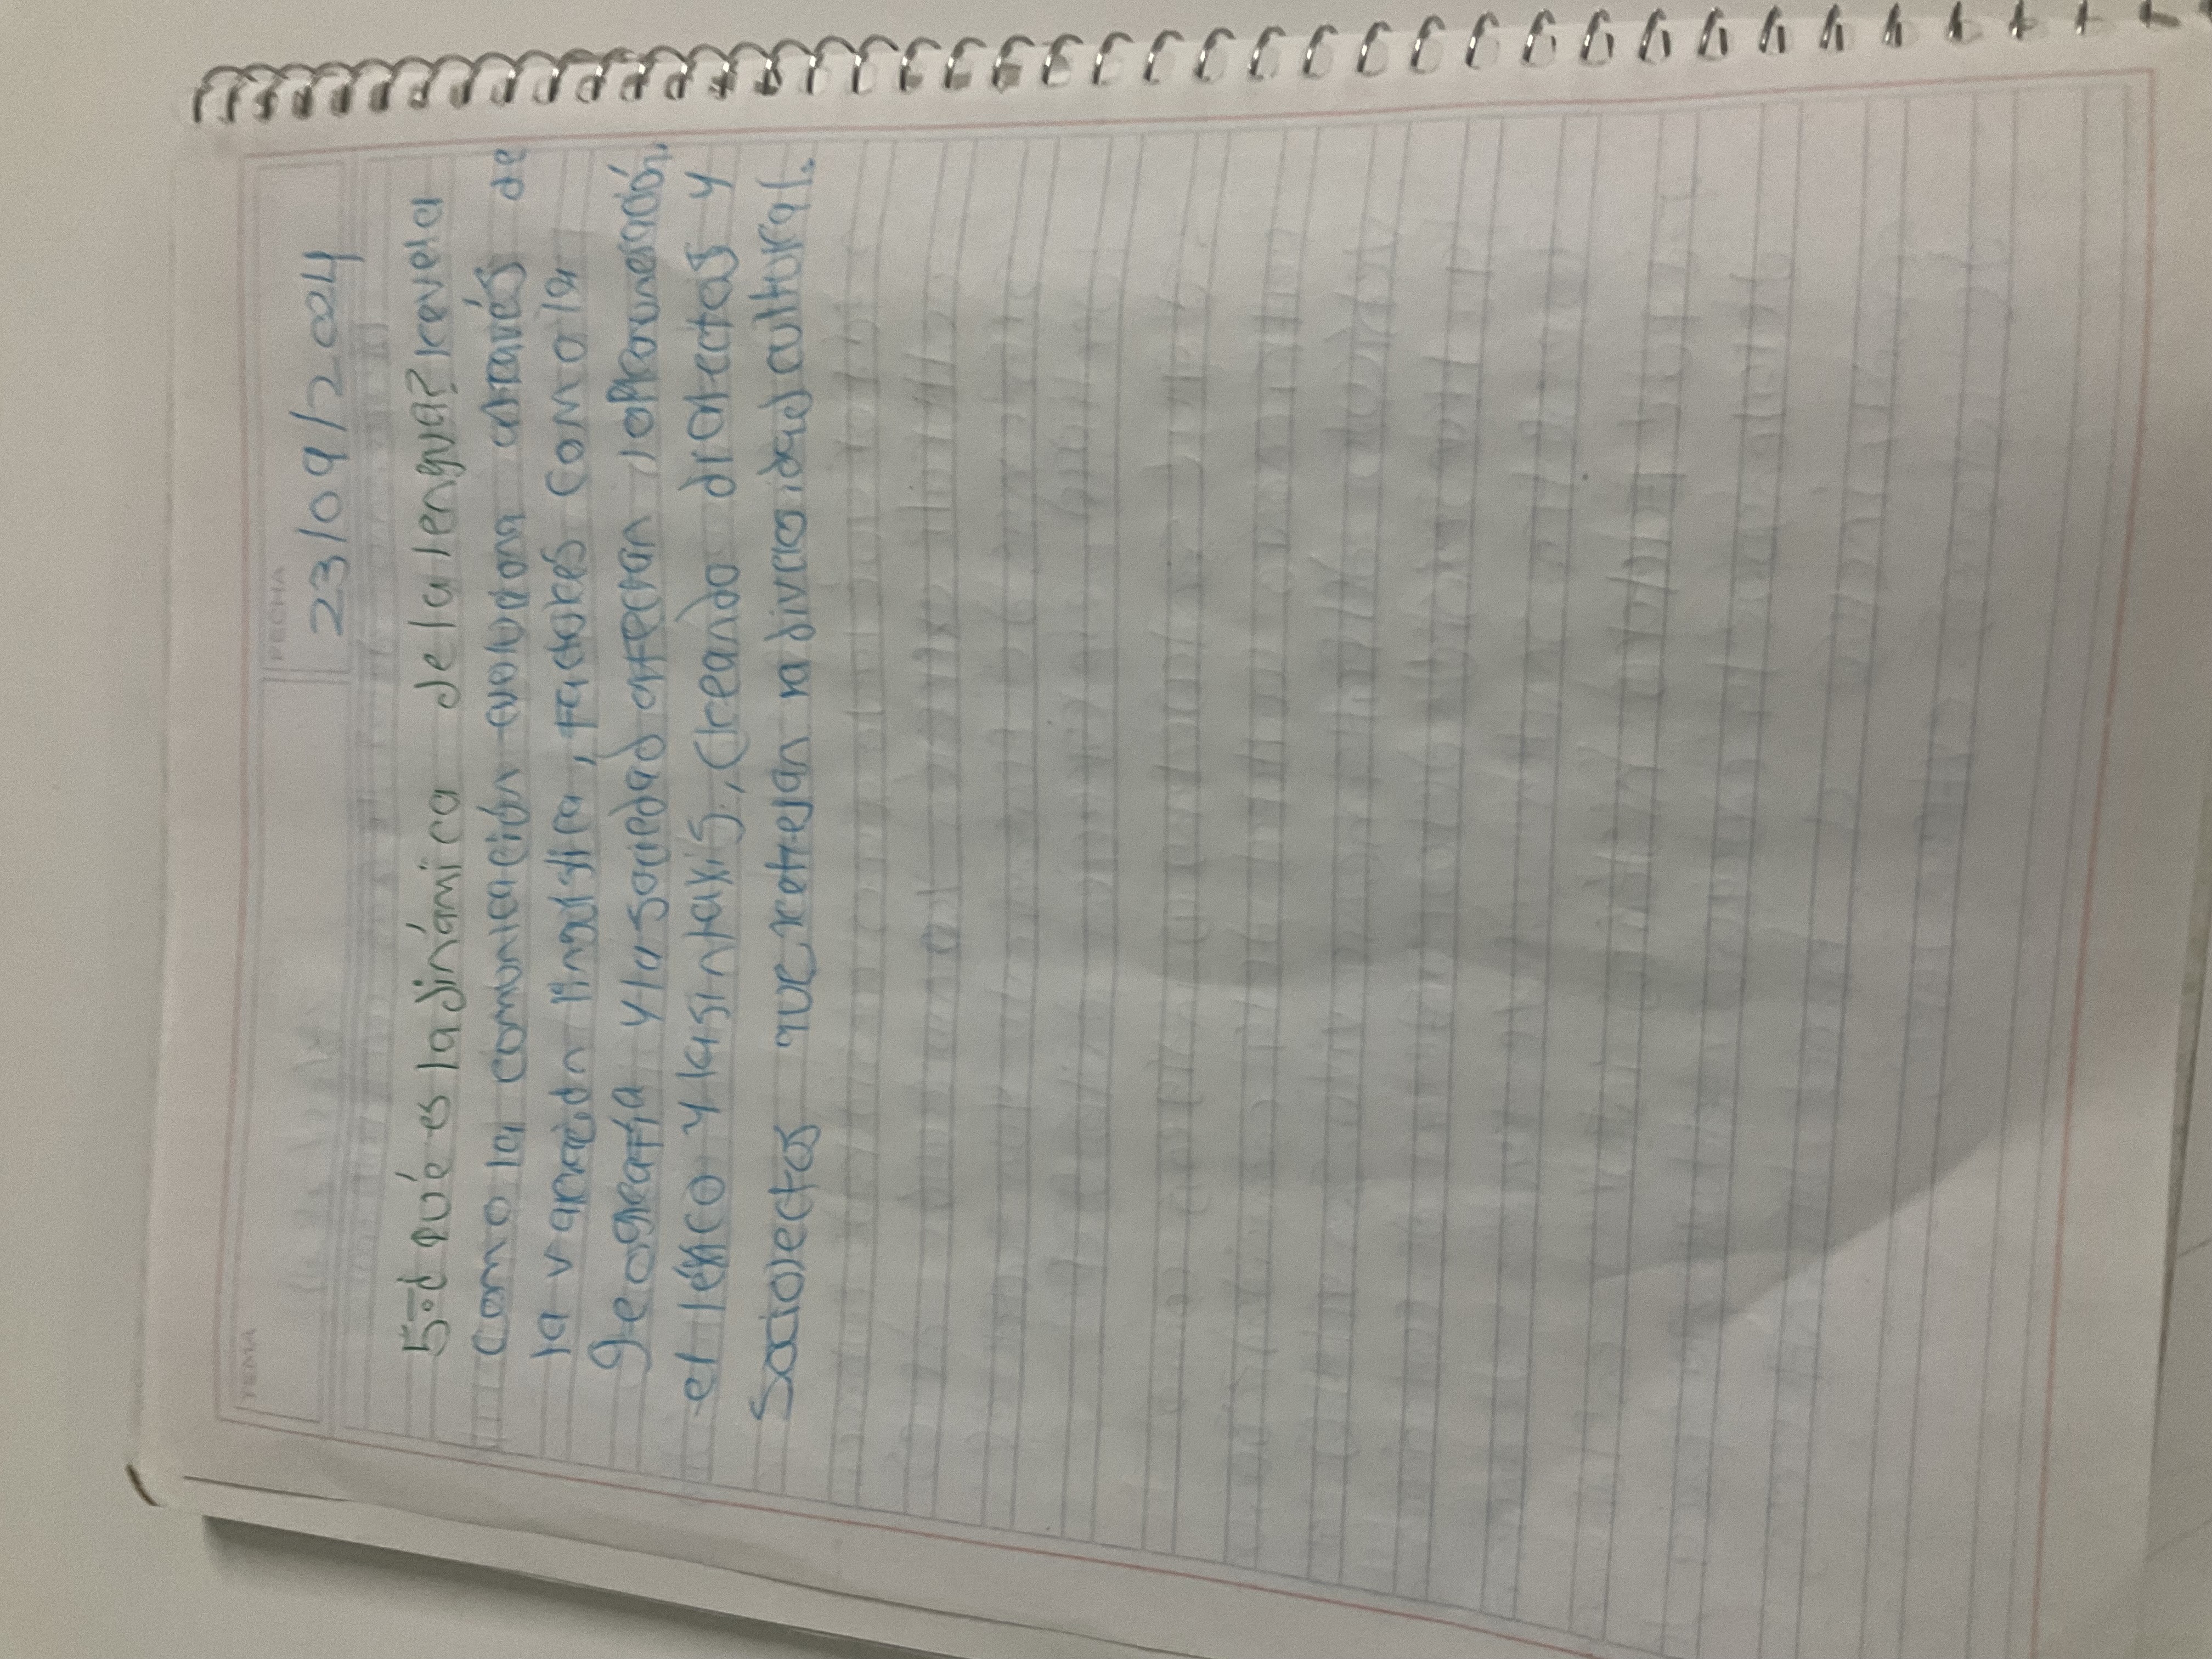 TEMA
FECHA
23/09/2024
5-¿Qué es la dinámica de la lengua? revela
como la comunicación evoluciona através de
la variación lingüística, factores como la
geografía y la sociedad afectan la pronunciación,
el léxico y la sintaxis, creando dialectos y
Sociolectos que reflejan la diversidad cultural.